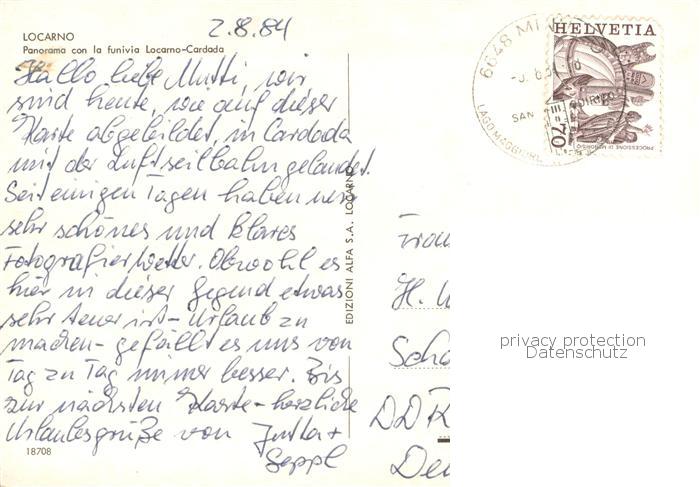 2.8.84
LOCARNO
Panorama con la funivia Locarno-Cardada
Hallo liebe Mutti, wir
sind heute, wie auf dieser
Karte abgebildet, in Cardada
mit der Luftseilbahn gelandet.
Seit einigen Tagen haben wir
sehr schönes und klares
Fotografierwetter. Obwohl es
hier in dieser Gegend etwas
sehr teuer ist - Urlaub zu
machen - gefällt es uns von
Tag zu Tag immer besser. Bis
zur nächsten Karte - herzliche
Urlaubsgrüße von Jutta +
Seppl
18708
EDIZIONI ALFA S.A. LOCARNO
6648 MI
SAN
LAGO MAGGIORE
HELVETIA
70
PROCESSIONE DI MENDRISIO
Frau
H.
Scho
DDR
Deu
privacy protection
Datenschutz